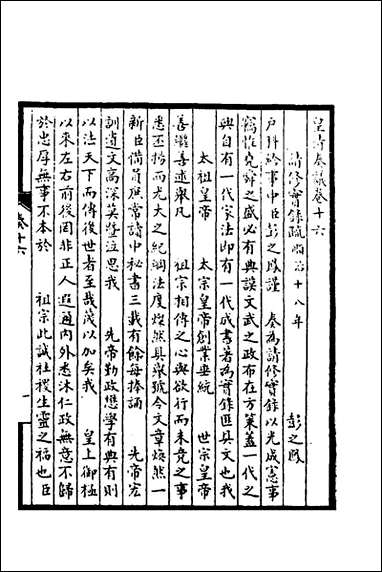 皇清奏議卷十六
請修實錄疏 順治十八年 彭之鳳
戶科給事中臣彭之鳳謹 奏為請修實錄以光成憲事
竊惟堯舜之盛必有典謨文武之政布在方策蓋一代之
興自有一代家法即有一代成書著為實錄匪具文也我
太祖皇帝 太宗皇帝創業垂統 世宗皇帝
善繼善述舉凡 祖宗相傳之心與欲行而未竟之事
悉丕揚而光大之紀綱法度燦然具舉號令文章煥然一
新臣備員
讀中秘書三載有餘每捧誦 先帝宏
訓遺文高深莫
泣思我 先帝勤政懋學有典有則
以法天下而傳後世者至哉蔑以加矣我 皇上御極
以來左右前後罔非正人遐邇內外悉沐仁政無意不歸
於忠厚無事不本於 祖宗此誠社稷生靈之福也臣
卷十六
一